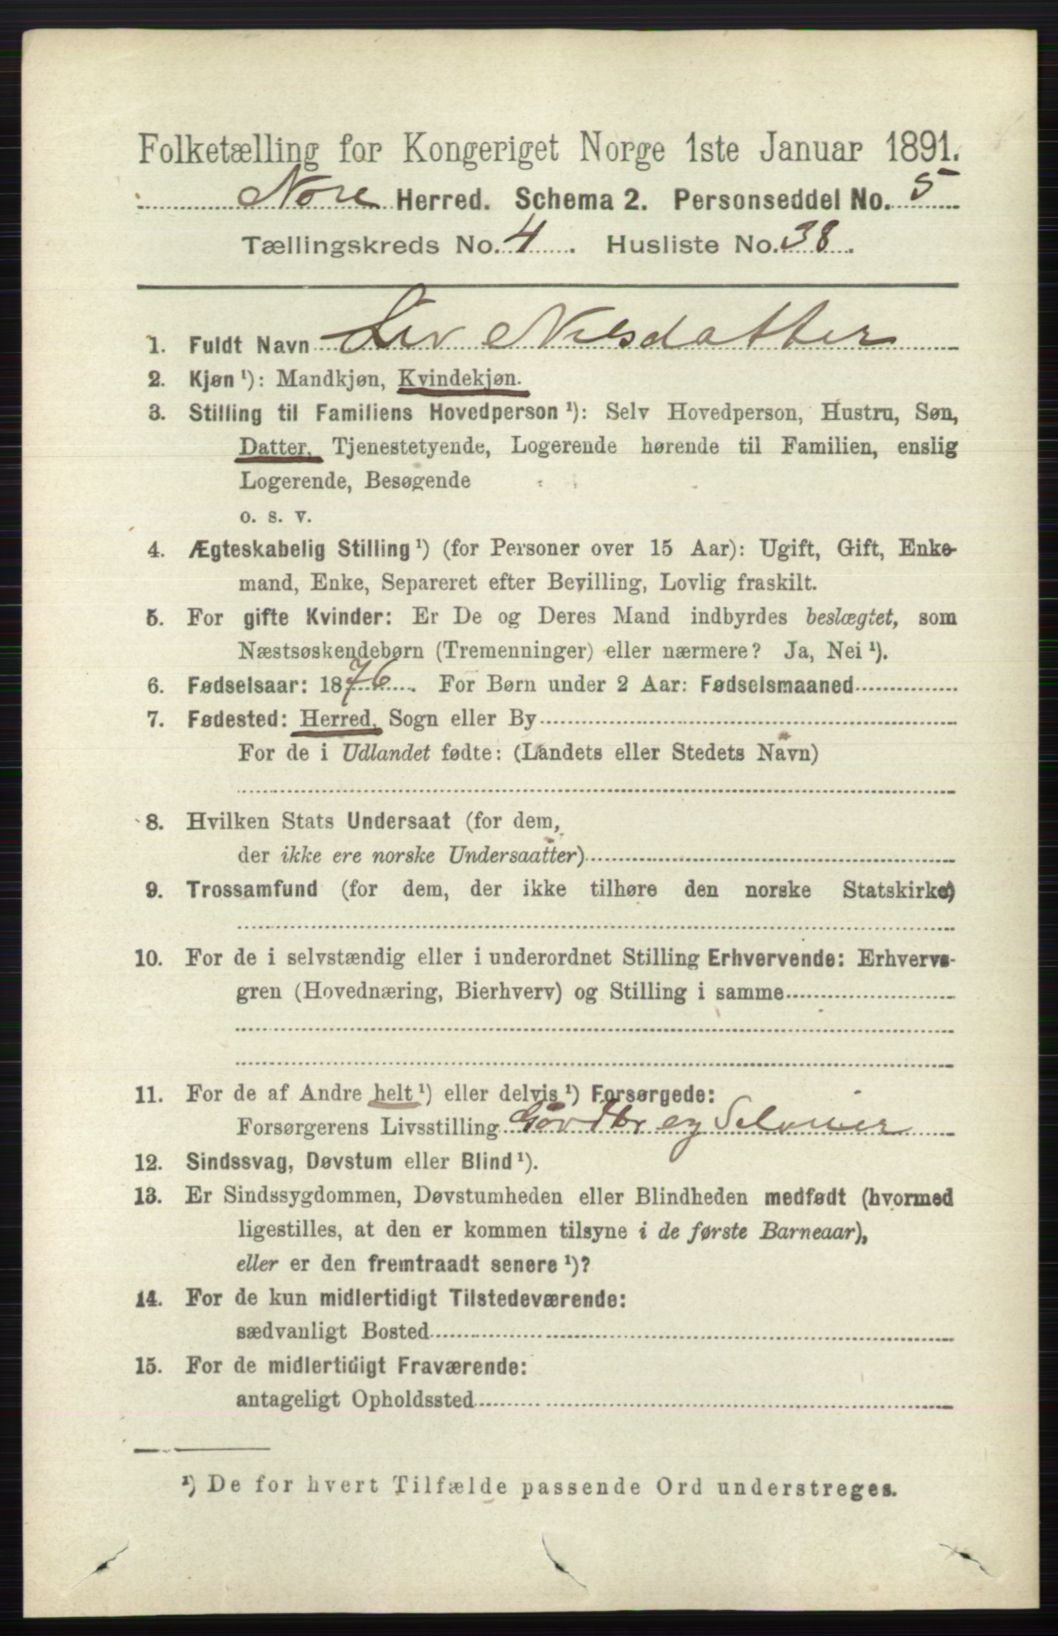 Folketælling for Kongeriget Norge 1ste Januar 1891.
Nore Herred. Schema 2. Personseddel No. 5
Tællingskreds No. 4. Husliste No. 38.
1. Fuldt Navn Liv Nilsdatter
2. Kjøn ¹): Mandkjøn, Kvindekjøn.
3. Stilling til Familiens Hovedperson ¹): Selv Hovedperson, Hustru, Søn,
Datter, Tjenestetyende, Logerende hørende til Familien, enslig
Logerende, Besøgende
o. s. v.
4. Ægteskabelig Stilling ¹) (for Personer over 15 Aar): Ugift, Gift, Enke-
mand, Enke, Separeret efter Bevilling, Lovlig fraskilt.
5. For gifte Kvinder: Er De og Deres Mand indbyrdes beslægtet, som
Næstsøskendebørn (Tremenninger) eller nærmere? Ja, Nei ¹).
6. Fødselsaar: 1876. For Børn under 2 Aar: Fødselsmaaned
7. Fødested: Herred, Sogn eller By
For de i Udlandet fødte: (Landets eller Stedets Navn)
8. Hvilken Stats Undersaat (for dem,
der ikke ere norske Undersaatter)
9. Trossamfund (for dem, der ikke tilhøre den norske Statskirke)
10. For de i selvstændig eller i underordnet Stilling Erhvervende: Erhvervs-
gren (Hovednæring, Bierhverv) og Stilling i samme
11. For de af Andre helt ¹) eller delvis ¹) Forsørgede:
Forsørgerens Livsstilling Gordbr og Seleier
12. Sindssvag, Døvstum eller Blind ¹).
13. Er Sindssygdommen, Døvstumheden eller Blindheden medfødt (hvormed
ligestilles, at den er kommen tilsyne i de første Barneaar),
eller er den fremtraadt senere ¹)?
14. For de kun midlertidigt Tilstedeværende:
sædvanligt Bosted
15. For de midlertidigt Fraværende:
antageligt Opholdssted
¹) De for hvert Tilfælde passende Ord understreges.